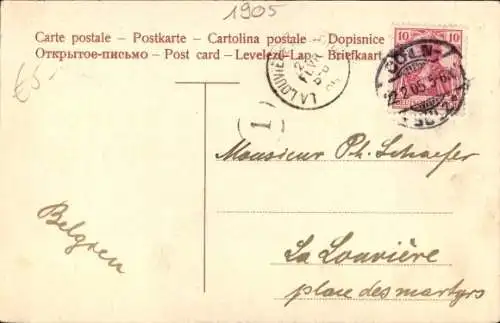 1905
Carte postale – Postkarte – Cartolina postale – Dopisnice
Открытое-письмо – Post card – Levelező-Lap – Briefkaart
£5-
10 10
CÖLN
22.2.05
LA LOUVIÈRE
1
Monsieur Ph. Schaefer
La Louvière
place des martyrs
Belgien